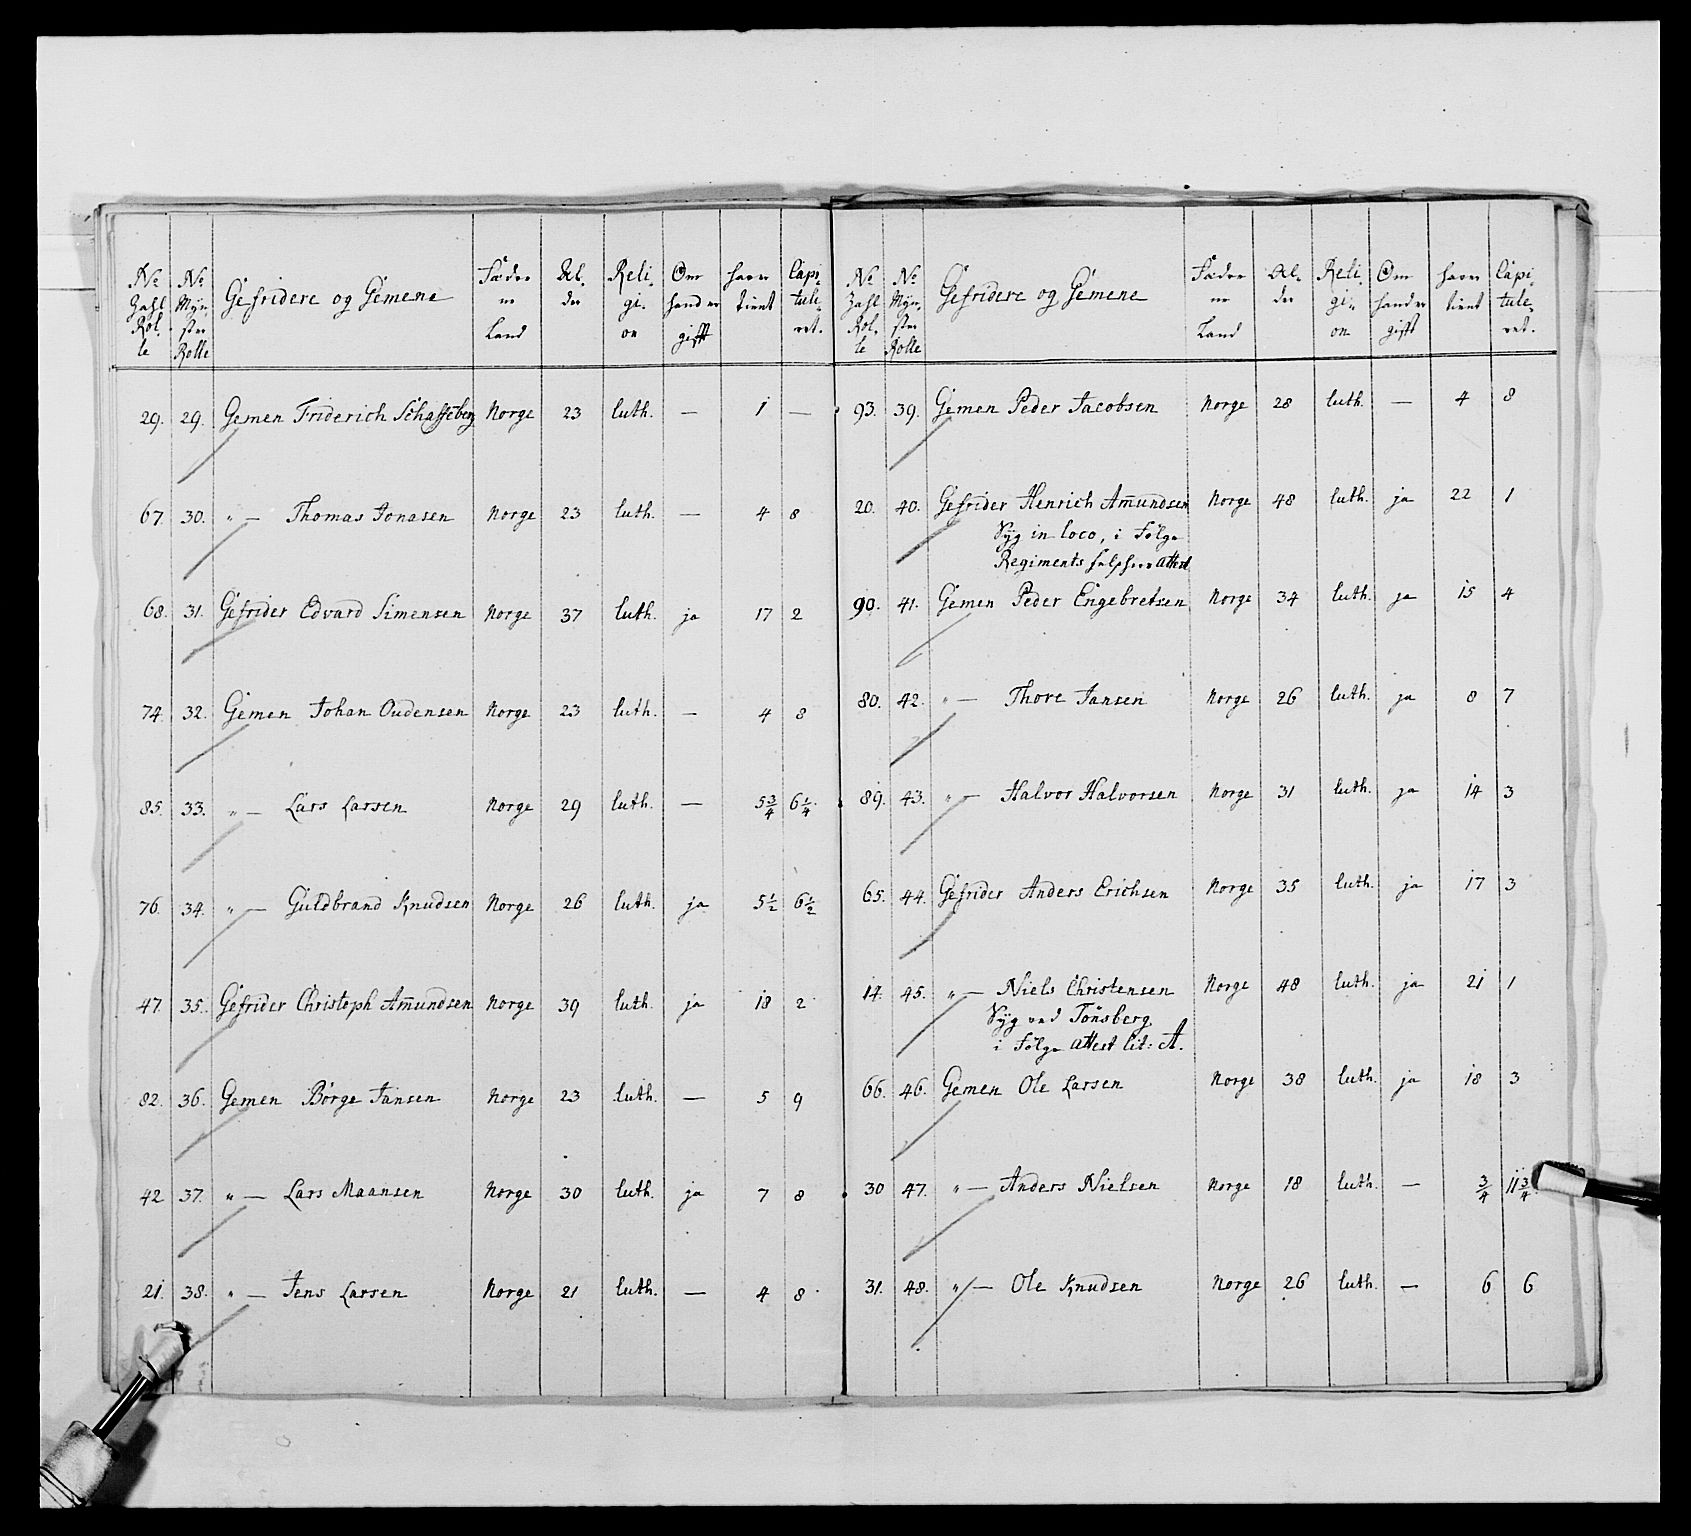 No Zahl Rolle | No Mynster Rolle | Gefridere og Gemene | Fæderne Land | Alder | Religion | Om hand er gift | haver tient | Capituleret.
29. 29. Gemen Friderich Schaffeberg Norge 23 luth. — 1 —
67. 30. " — Thomas Jonasen Norge 23 luth. — 4 8
68. 31. Gefrider Edvard Simensen Norge 37 luth. ja 17 2
74. 32. Gemen Johan Oudensen Norge 23 luth. — 4 8
85. 33. " — Lars Larsen Norge 29 luth. — 5 3/4 6 1/4
76. 34. " — Guldbrand Knudsen Norge 26 luth. ja 5 1/2 6 1/2
47. 35. Gefrider Christoph Amundsen Norge 39 luth. ja 18 2
82. 36. Gemen Börge Jansen Norge 23 luth. — 5 9
42 37. " — Lars Maansen Norge 30 luth. ja 7 8
21. 38. " — Jens Larsen Norge 21 luth. — 4 8
No Zahl Rolle | No Mynster Rolle | Gefridere og Gemene | Fæderne Land | Alder | Religion | Om hand er gift | haver tient | Capituleret.
93. 39. Gemen Peder Jacobsen Norge 28 luth. — 4 8
20. 40. Gefrider Henrich Amundsen Norge 48 luth. ja 22 1
Syg in loco, i Følge
Regiments attest
90. 41. Gemen Peder Engebretsen Norge 34 luth. ja 15 4
80. 42. " — Thore Jansen Norge 26 luth. ja 8 7
89. 43. " — Halvor Halvorsen Norge 31 luth. ja 14 3
65. 44. Gefrider Anders Erichsen Norge 35 luth. ja 17 3
14. 45. " — Niels Christensen Norge 48 luth. ja 21 1
Syg ved Tönsberg
i Følge attest lit: A.
66. 46. Gemen Ole Larsen Norge 38 luth. ja 18 3
30 47. " — Anders Nielsen Norge 18 luth. — 3/4 11 3/4
31. 48. " — Ole Knudsen Norge 26 luth. — 6 6